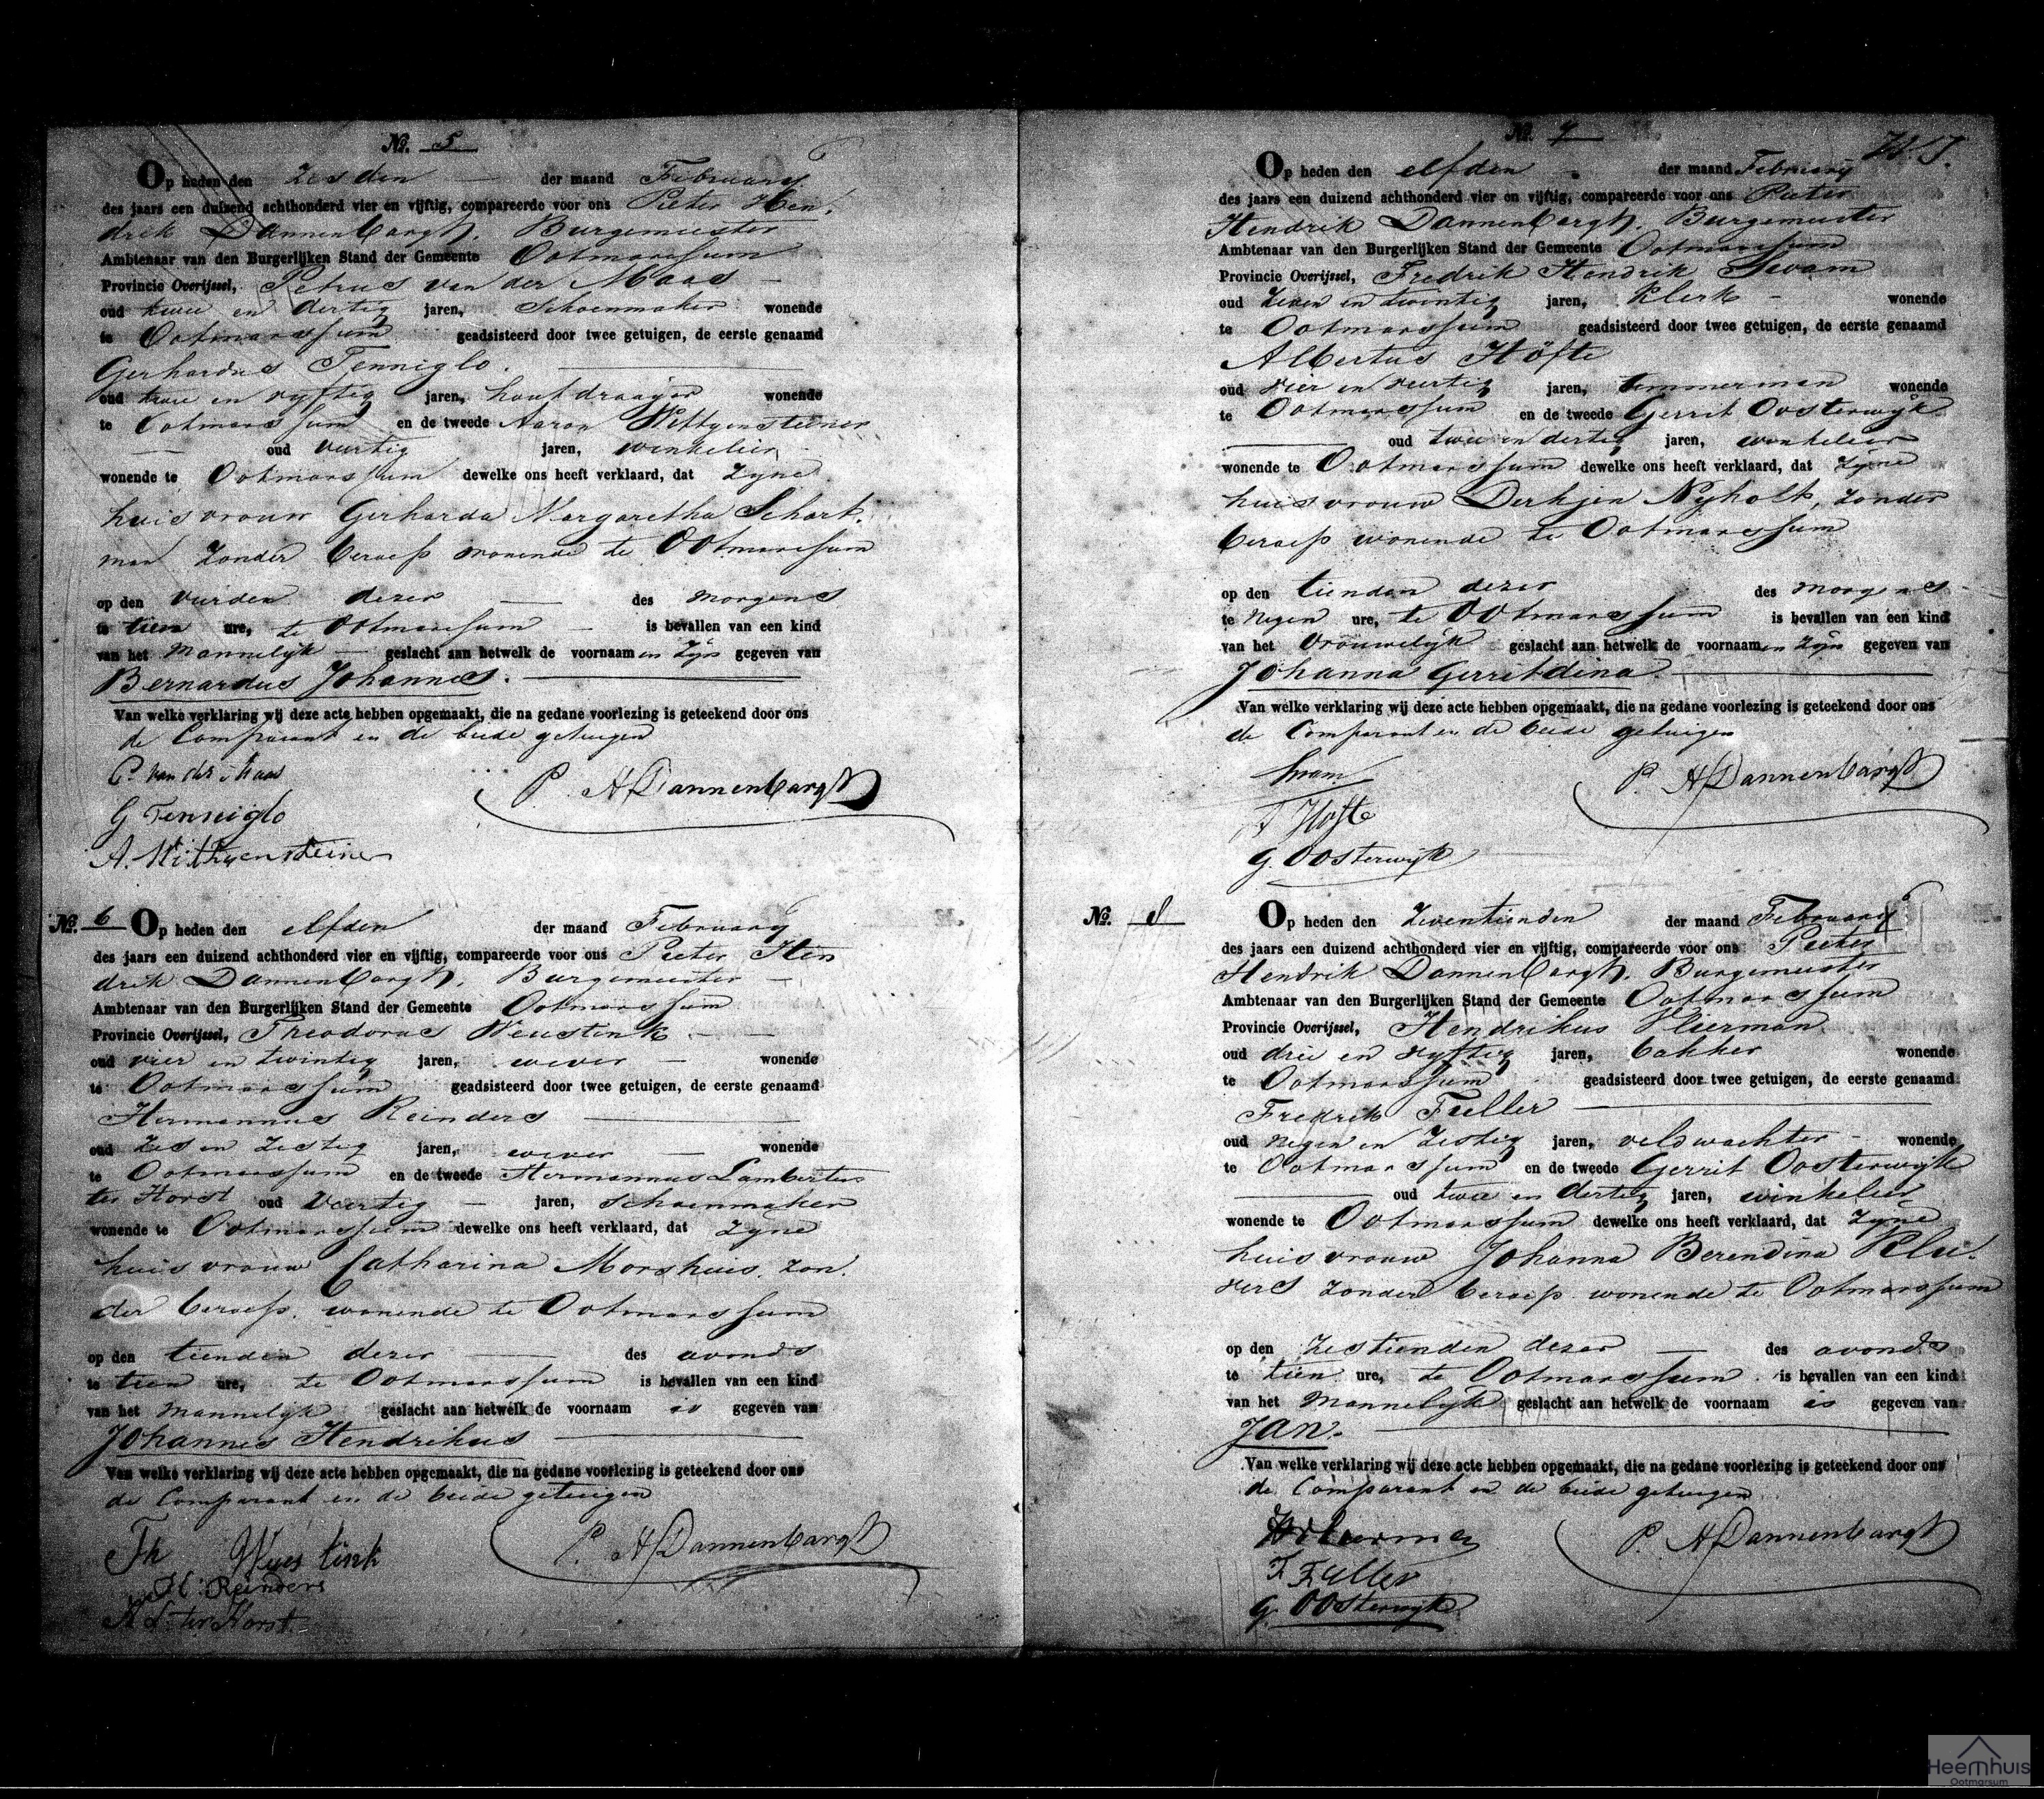 No. 5
Op heden den zesden der maand February
des jaars een duizend achthonderd vier en vijftig, compareerde voor ons Pieter Hen-
drik Dannenbargh, Burgemeister
Ambtenaar van den Burgerlijken Stand der Gemeente Ootmarssum
Provincie Overijssel, Petrus van der Maas
oud twee en dertig jaren, Schoenmaker wonende
te Ootmarssum geadsisteerd door twee getuigen, de eerste genaamd
Gerhardus Tenniglo.
oud twee en vyftig jaren, houtdraayer wonende
te Ootmarssum en de tweede Aaron Wittgensteiner
oud veertig jaren, winkelier
wonende te Ootmarssum dewelke ons heeft verklaard, dat zyne
huisvrouw Gerharda Margaretha Schart-
man zonder beroep wonende te Ootmarssum
op den vierden dezer des morgens
te tien ure, te Ootmarssum is bevallen van een kind
van het mannelyk geslacht aan hetwelk de voornaamen zyn gegeven van
Bernardus Johannes.
Van welke verklaring wij deze acte hebben opgemaakt, die na gedane voorlezing is geteekend door ons
de Comparant en de beide getuigen
P. van der Maas
P. H Dannenbargh
G Tenniglo
A. Wittgensteiner
No. 6
Op heden den elfden der maand February
des jaars een duizend achthonderd vier en vijftig, compareerde voor ons Pieter Hen
drik Dannenbargh, Burgemeister
Ambtenaar van den Burgerlijken Stand der Gemeente Ootmarssum
Provincie Overijssel, Theodorus Weustink
oud vier en twintig jaren, wever wonende
te Ootmarssum geadsisteerd door twee getuigen, de eerste genaamd
Hermannus Reinders
oud zes en zestig jaren, wever wonende
te Ootmarssum en de tweede Hermannus Lambertus
ter Horst oud veertig jaren, schoenmaker
wonende te Ootmarssum dewelke ons heeft verklaard, dat zyne
huisvrouw Catharina Morshuis, zon-
der beroep, wonende te Ootmarssum
op den tienden dezer des avonds
te tien ure, te Ootmarssum is bevallen van een kind
van het mannelyk geslacht aan hetwelk de voornaam is gegeven van
Johannes Hendrikus
Van welke verklaring wij deze acte hebben opgemaakt, die na gedane voorlezing is geteekend door ons
de Comparant en de beide getuigen
Th Weustink
P. H Dannenbargh
H: Reinders
H L: ter Horst
No. 7
Op heden den elfden der maand February
des jaars een duizend achthonderd vier en vijftig, compareerde voor ons Pieter
Hendrik Dannenbargh, Burgemeister
Ambtenaar van den Burgerlijken Stand der Gemeente Ootmarssum
Provincie Overijssel, Fredrik Hendrik Swam
oud zeven en twintig jaren, klerk wonende
te Ootmarssum geadsisteerd door twee getuigen, de eerste genaamd
Albertus Höfte
oud vier en veertig jaren, timmerman wonende
te Ootmarssum en de tweede Gerrit Oosterwijk
oud twee en dertig jaren, winkelier
wonende te Ootmarssum dewelke ons heeft verklaard, dat zyne
huisvrouw Derkjen Nyholt, zonder
beroep wonende te Ootmarssum
op den tienden dezer des morgens
te negen ure, te Ootmarssum is bevallen van een kind
van het vrouwelyk geslacht aan hetwelk de voornaamen zyn gegeven van
Johanna Gerritdina.
Van welke verklaring wij deze acte hebben opgemaakt, die na gedane voorlezing is geteekend door ons
de Comparant en de beide getuigen
Swam
P. H Dannenbargh
Hofte
G. Oosterwijk
No. 8
Op heden den zeventienden der maand February
des jaars een duizend achthonderd vier en vijftig, compareerde voor ons Pieter
Hendrik Dannenbargh, Burgemeister
Ambtenaar van den Burgerlijken Stand der Gemeente Ootmarssum
Provincie Overijssel, Hendrikus Vlierman
oud drie en vyftig jaren, bakker wonende
te Ootmarssum geadsisteerd door twee getuigen, de eerste genaamd
Fredrik Fuller
oud negen en zestig jaren, veldwachter wonende
te Ootmarssum en de tweede Gerrit Oosterwijk
oud twee en dertig jaren, winkelier
wonende te Ootmarssum dewelke ons heeft verklaard, dat zyne
huisvrouw Johanna Berendina Klu-
vers zonder beroep wonende te Ootmarssum
op den zestienden dezer des avonds
te tien ure, te Ootmarssum is bevallen van een kind
van het mannelyk geslacht aan hetwelk de voornaam is gegeven van
Jan.
Van welke verklaring wij deze acte hebben opgemaakt, die na gedane voorlezing is geteekend door ons
de Comparant en de beide getuigen
P. H Dannenbargh
F Fuller
G. Oosterwijk
Heemhuis
Ootmarsum